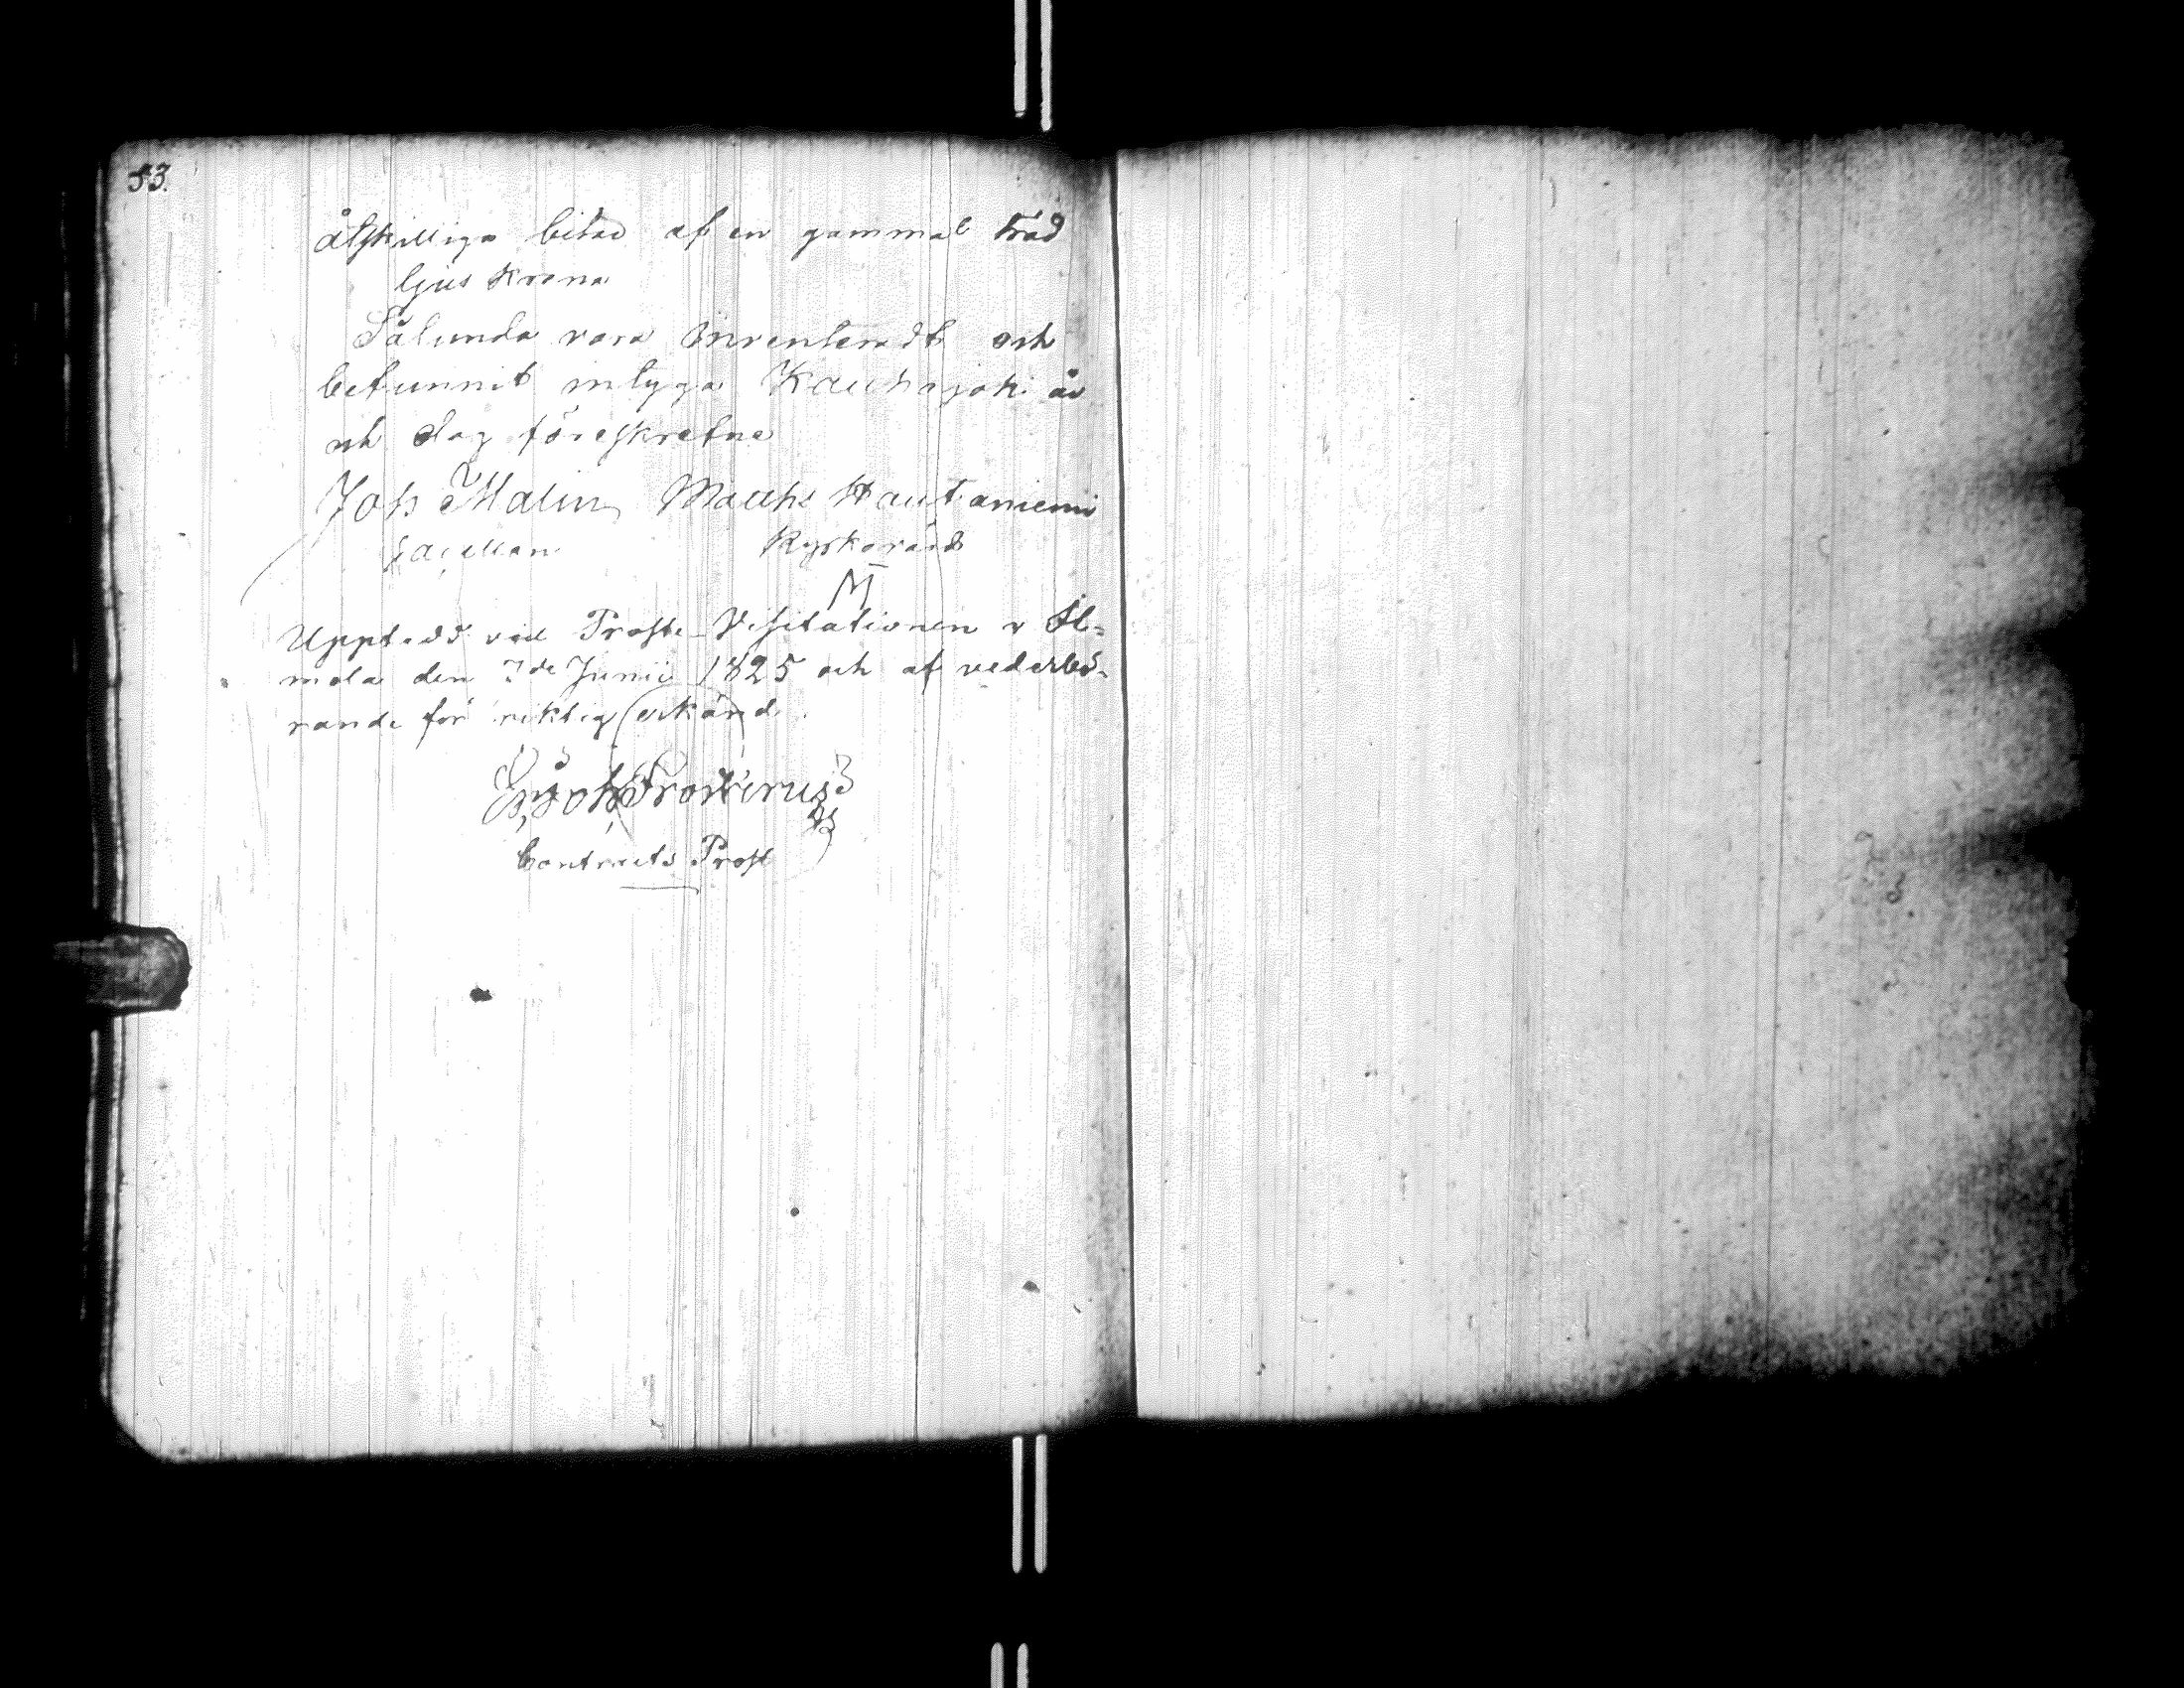 53.
åtskilliga bitar af en gammal träd
ljus krona
Sålunda vara inventeradt och
befunnit intyga Kauhajoki år
och dag föreskrefne
Joh Malin Mathi Hautaniemi
Capellan Kyrkovärd
M
Upptedd vid Prosti Visitationen i Il-
mola den 7de Junii 1825 och af vederbö-
rande för riktig erkänd.
Joh Frosterus
Contracts Prost